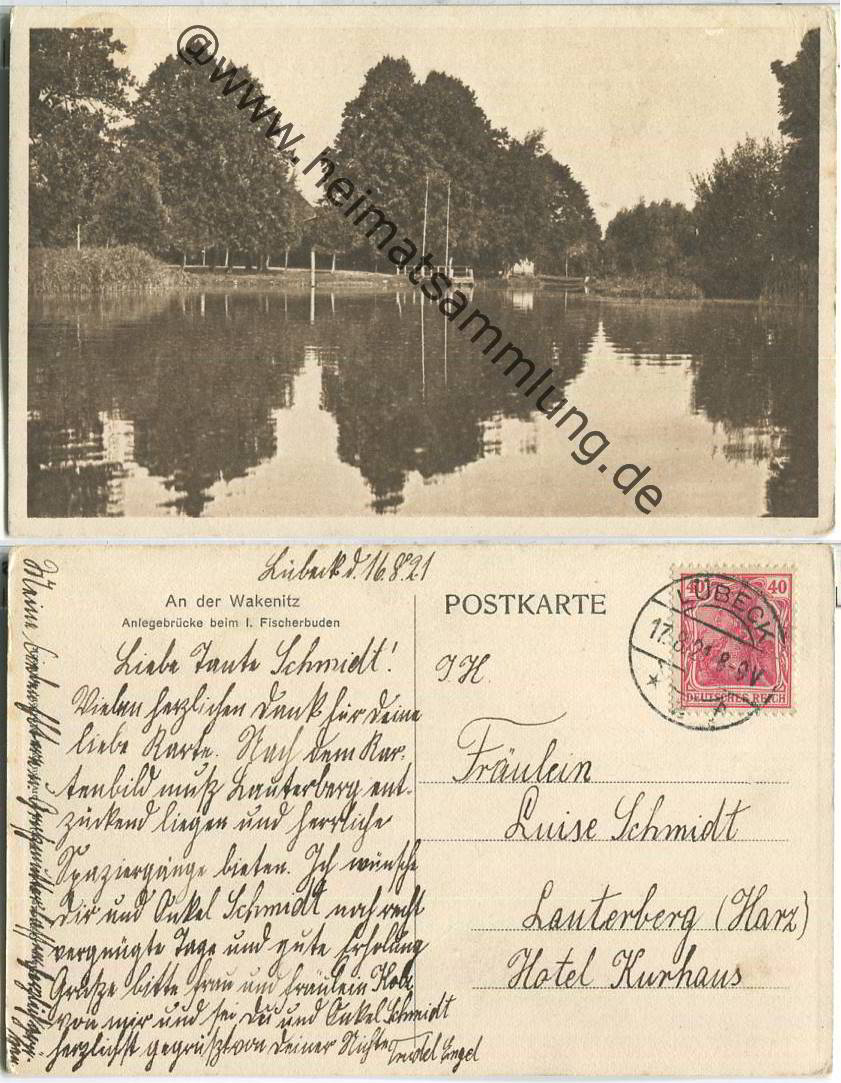 @www.heimatsammlung.de
Lübeck d. 16.8.21
An der Wakenitz
Anlegebrücke beim I. Fischerbuden
POSTKARTE
40 40
DEUTSCHES REICH
LÜBECK
17.8.21. 8-9V
Liebe Tante Schmidt!
Vielen herzlichen Dank für Deine
liebe Karte. Nach dem Kar-
tenbild muß Lauterberg ent-
zückend liegen und herrliche
Spaziergänge bieten. Ich wünsche
Dir und Onkel Schmidt noch recht
vergnügte Tage und gute Erholung
Grüße bitte Frau und Fräulein
von mir und sei Du und Onkel Schmidt
herzlichst gegrüßt von Deiner Nichte
Engel
Meine lieben Eltern
Fräulein
Luise Schmidt
Lauterberg (Harz)
Hotel Kurhaus